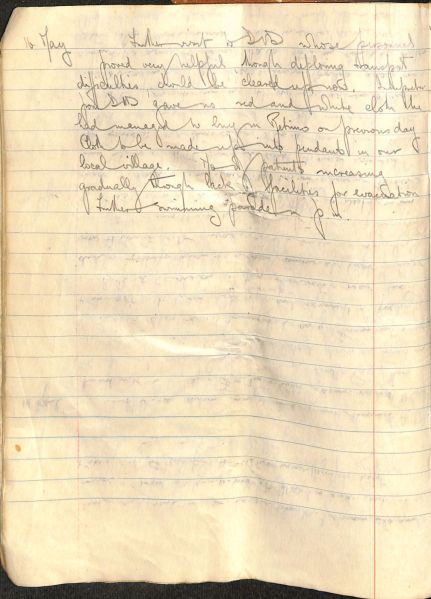 16 May Further visit to GDB whose personnel
proved very helpful though deploring transport
difficulties should be cleared up now. Interpreter
for GDB gave us red and white cloth he
had managed to buy in Retimo on previous day
Cloth to be made up into pendants in our
local village. No of patients increasing
gradually though lack of facilities for evacuation
Further swimming parade in p.m.